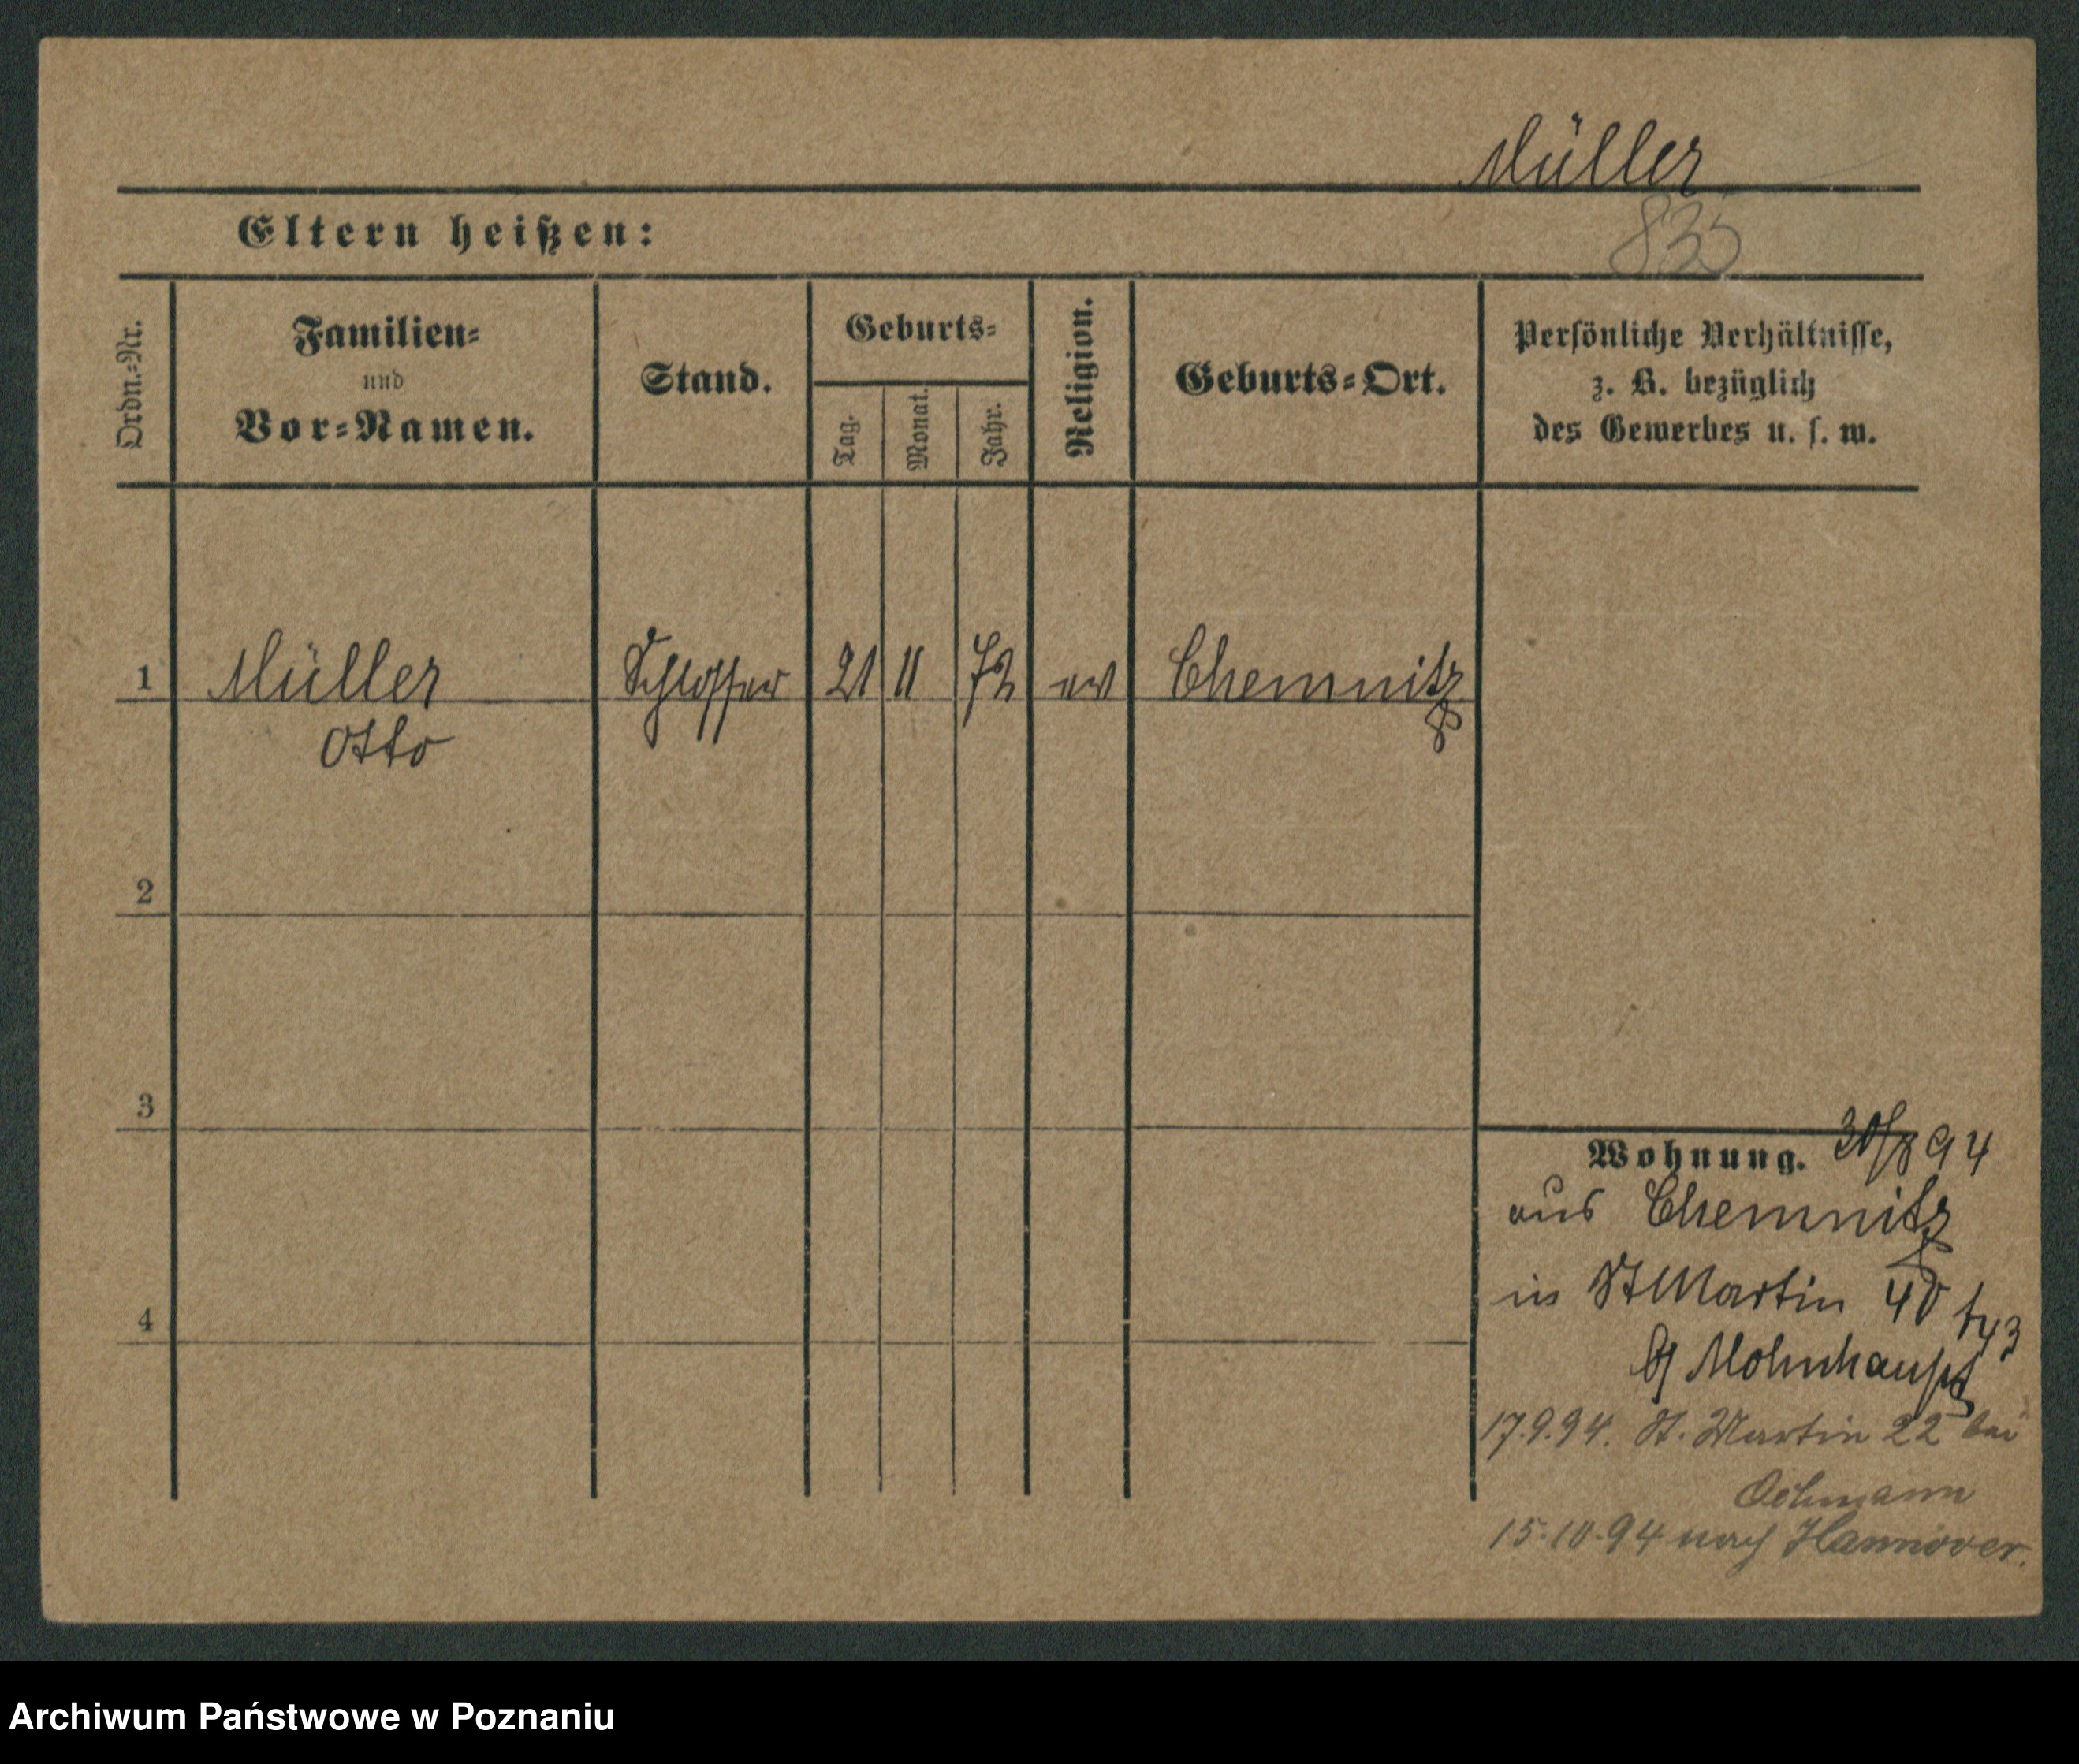 Müller
Eltern heißen:
835
Ordn.-Nr.
Familien-
und
Vor-Namen.
Stand.
Geburts-
Tag.
Monat.
Jahr.
Religion.
Geburts-Ort.
Persönliche Verhältnisse,
z. B. bezüglich
des Gewerbes u. s. w.
1 Müller Schlosser 21 11 72 ev Chemnitz
Otto
2
3
4
Wohnung. 30/8 94
aus Chemnitz
in St Martin 40
b/ Mohnhaupt
17.9.94. St. Martin 22 bei
Oehmann
15.10.94 nach Hannover.
Archiwum Państwowe w Poznaniu